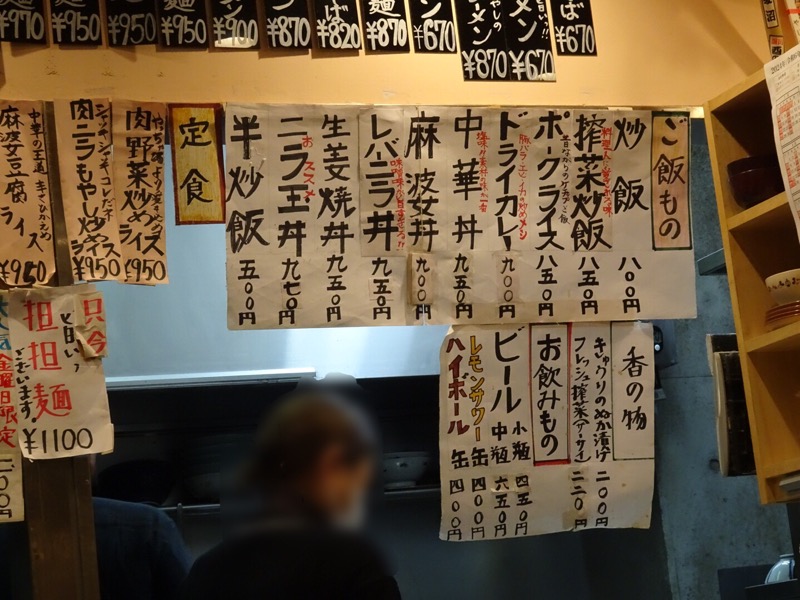 ¥970
¥950
¥950
¥950
¥900
¥870
ば
¥820
麺
¥870
ン
¥670
ーメン
¥870
メン
¥670
ば
¥670
ご飯もの
炒飯 八〇〇円
搾菜炒飯 八五〇円
ポークライス 八五〇円
ドライカレー 九〇〇円
中華丼 九五〇円
麻婆丼 九〇〇円
レバニラ丼 九五〇円
生姜焼丼 九五〇円
おススメ
ニラ玉丼 九七〇円
半炒飯 五〇〇円
定食
肉野菜炒めライス
¥950
シャッキシャキコレだネ
肉ニラもやし炒めライス
¥950
中華の王道
麻婆豆腐ライス
¥950
只今
担担麺
と白い、
ございます。
金曜日限定
¥1100
香の物
きゅうりのぬか漬け 二〇〇円
フレッシュ搾菜(ザーサイ) 二二〇円
お飲みもの
ビール 小瓶 四五〇円
中瓶 六五〇円
レモンサワー 缶 四〇〇円
ハイボール 缶 四〇〇円